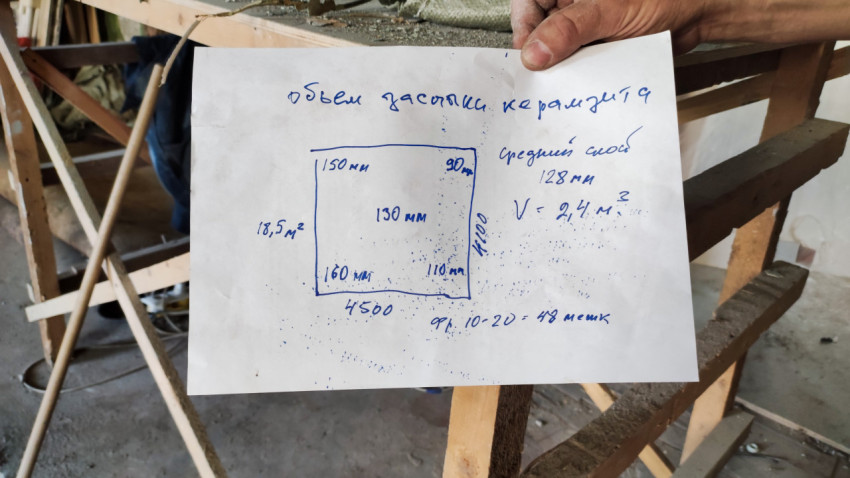 объем засыпки керамзита
средний слой
128 мм
V = 2,4 м³
150 мм
90 мм
18,5 м²
130 мм
4100
160 мм
110 мм
4500
Фр. 10-20 = 48 мешк